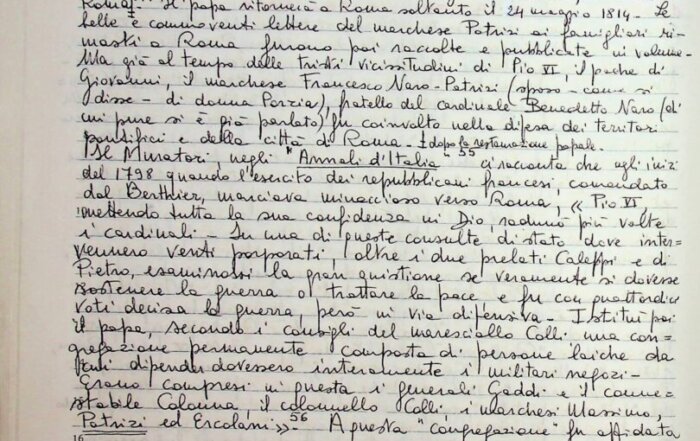 Roma". Il papa ritornerà a Roma soltanto il 24 maggio 1814. Le
belle e commoventi lettere del marchese Patrizi ai famigliari ri-
masti a Roma furono poi raccolte e pubblicate in volume.
Ma già al tempo delle tristi vicissitudini di Pio VI, il padre di
Giovanni, il marchese Francesco Naro-Patrizi (sposo - come si
disse - di donna Porzia), fratello del cardinale Benedetto Naro (di
cui pure si è già parlato) fu coinvolto nella difesa dei territori
pontifici e della città di Roma. - dopo la restaurazione papale.
Il Muratori, negli "Annali d'Italia" 55 ci racconta che agli inizi
del 1798 quando l'esercito dei repubblicani francesi, comandato
dal Berthier, marciava minaccioso verso Roma, « Pio VI,
mettendo tutta la sua confidenza in Dio, radunò più volte
i cardinali - In una di queste consulte di stato dove inter-
vennero venti porporati, oltre i due prelati Caleppi e di
Pietro, esaminossi la gran quistione se veramente si dovesse
sostenere la guerra o trattare la pace e fu con quattordici
voti decisa la guerra, però in via difensiva - Istituì poi
il papa, secondo i consigli del maresciallo Colli, una con-
gregazione permanente composta di persone laiche da
cui dipender dovessero interamente i militari negozi -
Erano compresi in questa i generali Gaddi e il conne-
stabile Colonna, il colonnello Colli, i marchesi Massimo,
Patrizi ed Ercolani». 56 A questa "congregazione" fu affidata
16